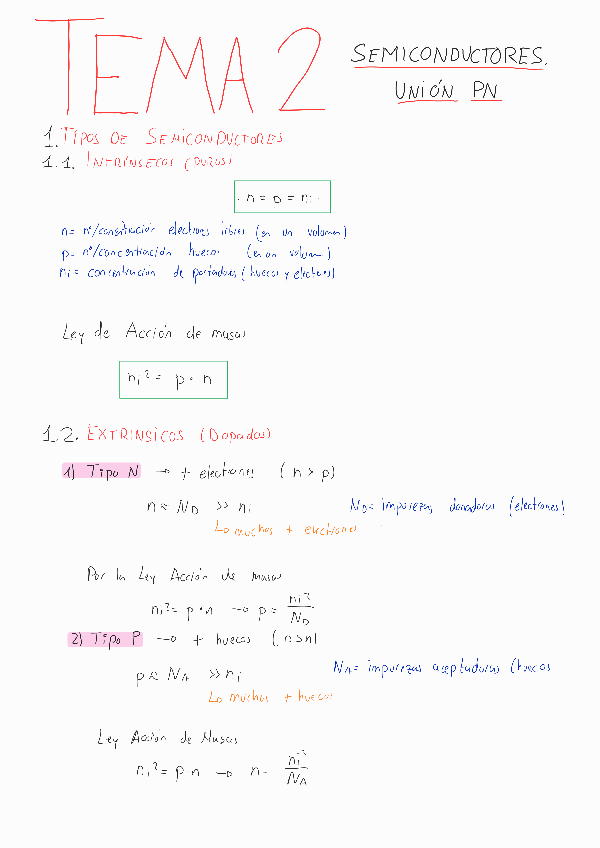 TEMA 2
SEMICONDUCTORES.
UNIÓN PN
1. TIPOS DE SEMICONDUCTORES
1.1. INTRÍNSECOS (PUROS)
n = p = ni
n = nº/concentración electrones libres (en un volumen)
p = nº/concentración huecos (en un volumen)
ni = concentración de portadores (huecos y electrones)
Ley de Acción de masas
ni² = p · n
1.2. EXTRINSICOS (Dopados)
1) Tipo N → + electrones (n > p)
n ≈ ND >> ni
ND = impurezas donadoras (electrones)
Lo muchos + electrones
Por la Ley Acción de masas
ni² = p · n → p = ni²/ND
2) Tipo P → + huecos (p > n)
p ≈ NA >> ni
NA = impurezas aceptadoras (huecos
Lo muchos + huecos
Ley Acción de Masas
ni² = p n → n = ni²/NA